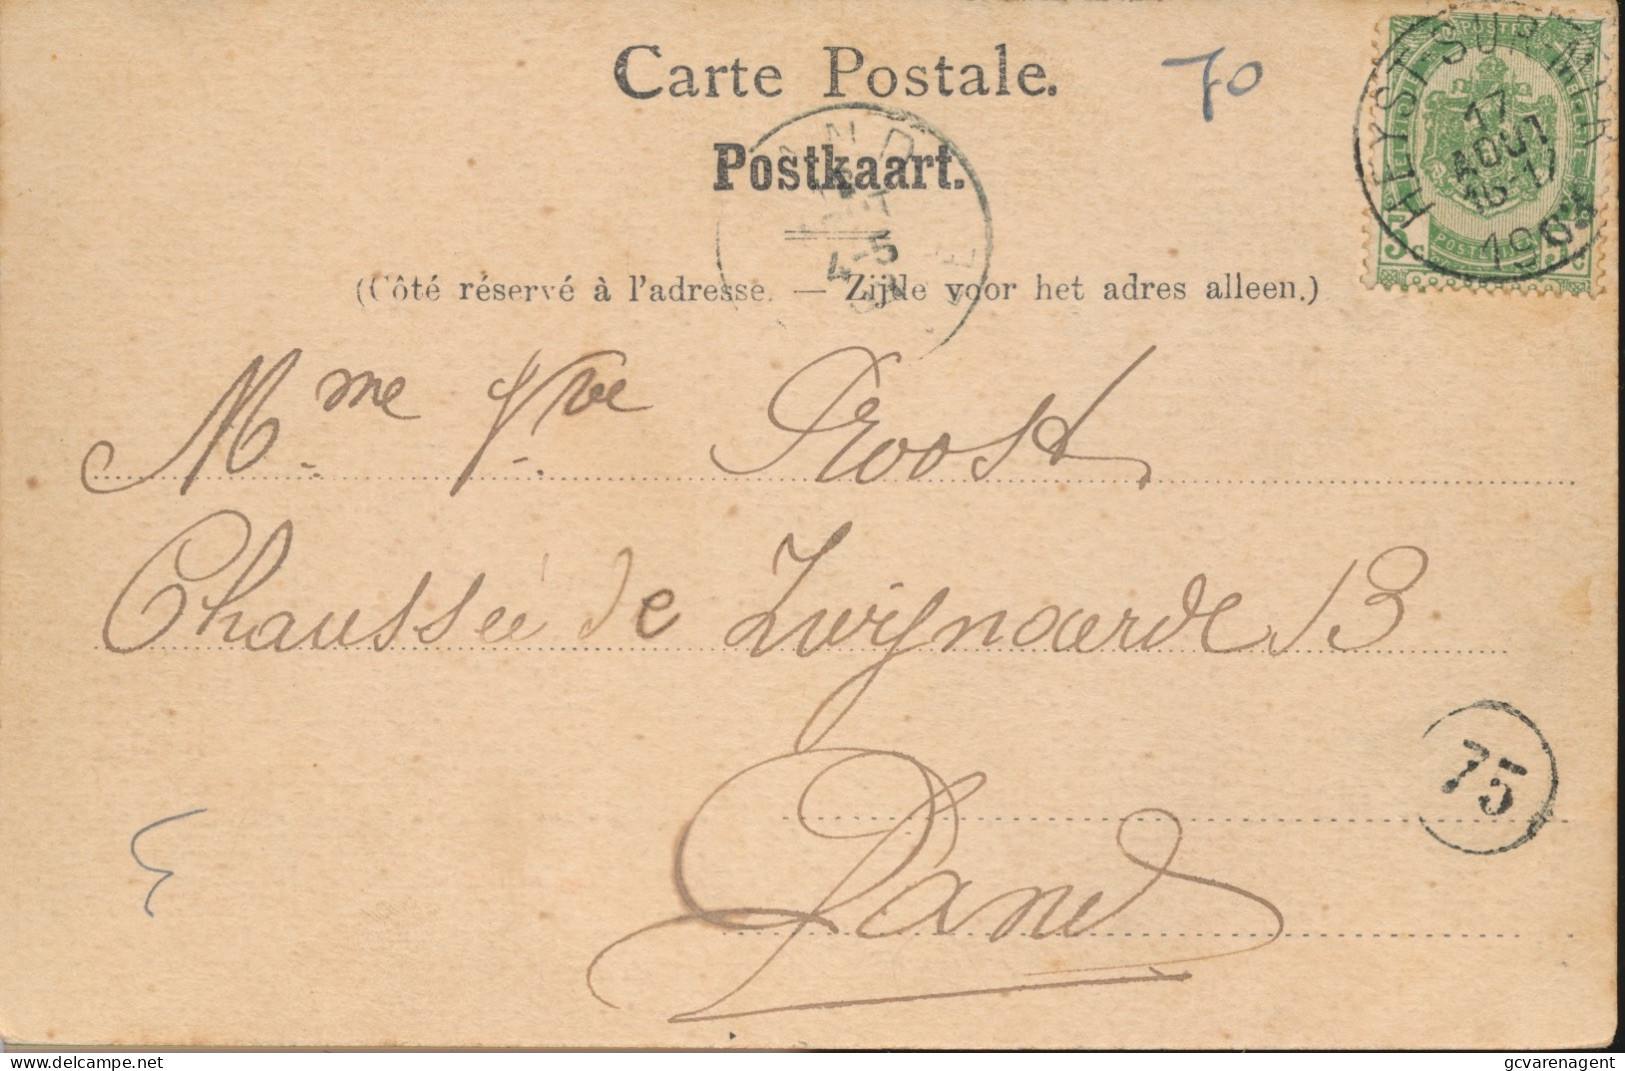 Carte Postale.
70
Postkaart.
HEYST-SUR-MER
17
AOUT
16-17
POSTES
5c
4-5
(Côté réservé à l'adresse. — Zijde voor het adres alleen.)
Mme Vve Proost
Chaussée de Zwijnaerde 13
75
Gand
delcampe.net
gcvarenagent